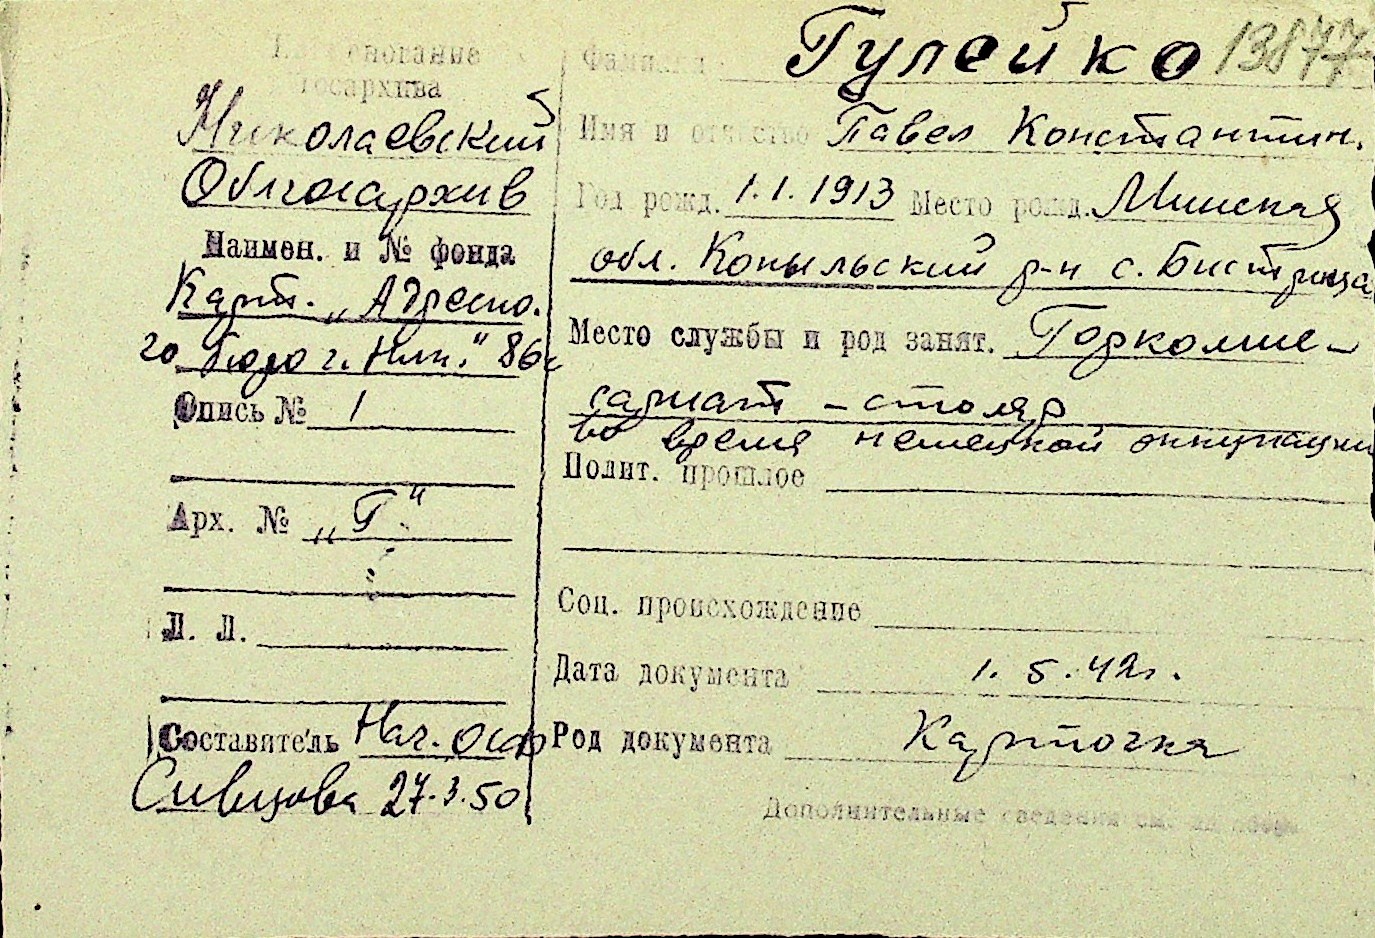 Наименование
госархива
Николаевский
Облгосархив
Наимен. и № фонда
Карт. „Адресно-
го бюро г. Ник." 86с
Опись № 1
Арх. № „Г"
Л. Л.
Составитель Нач. осф
Сивцова 27.3.50
Фамилия Гулейко 13877
Имя и отчество Павел Константин.
Год рожд. 1.1.1913 Место рожд. Минская
обл. Копыльский р-н с. Бистрица
Место службы и род занят. Горкоми-
сариат - столяр
во время немецкой оккупации
Полит. прошлое
Соц. происхождение
Дата документа 1.5.42г.
Род документа Карточка
Дополнительные сведения см. на обор.